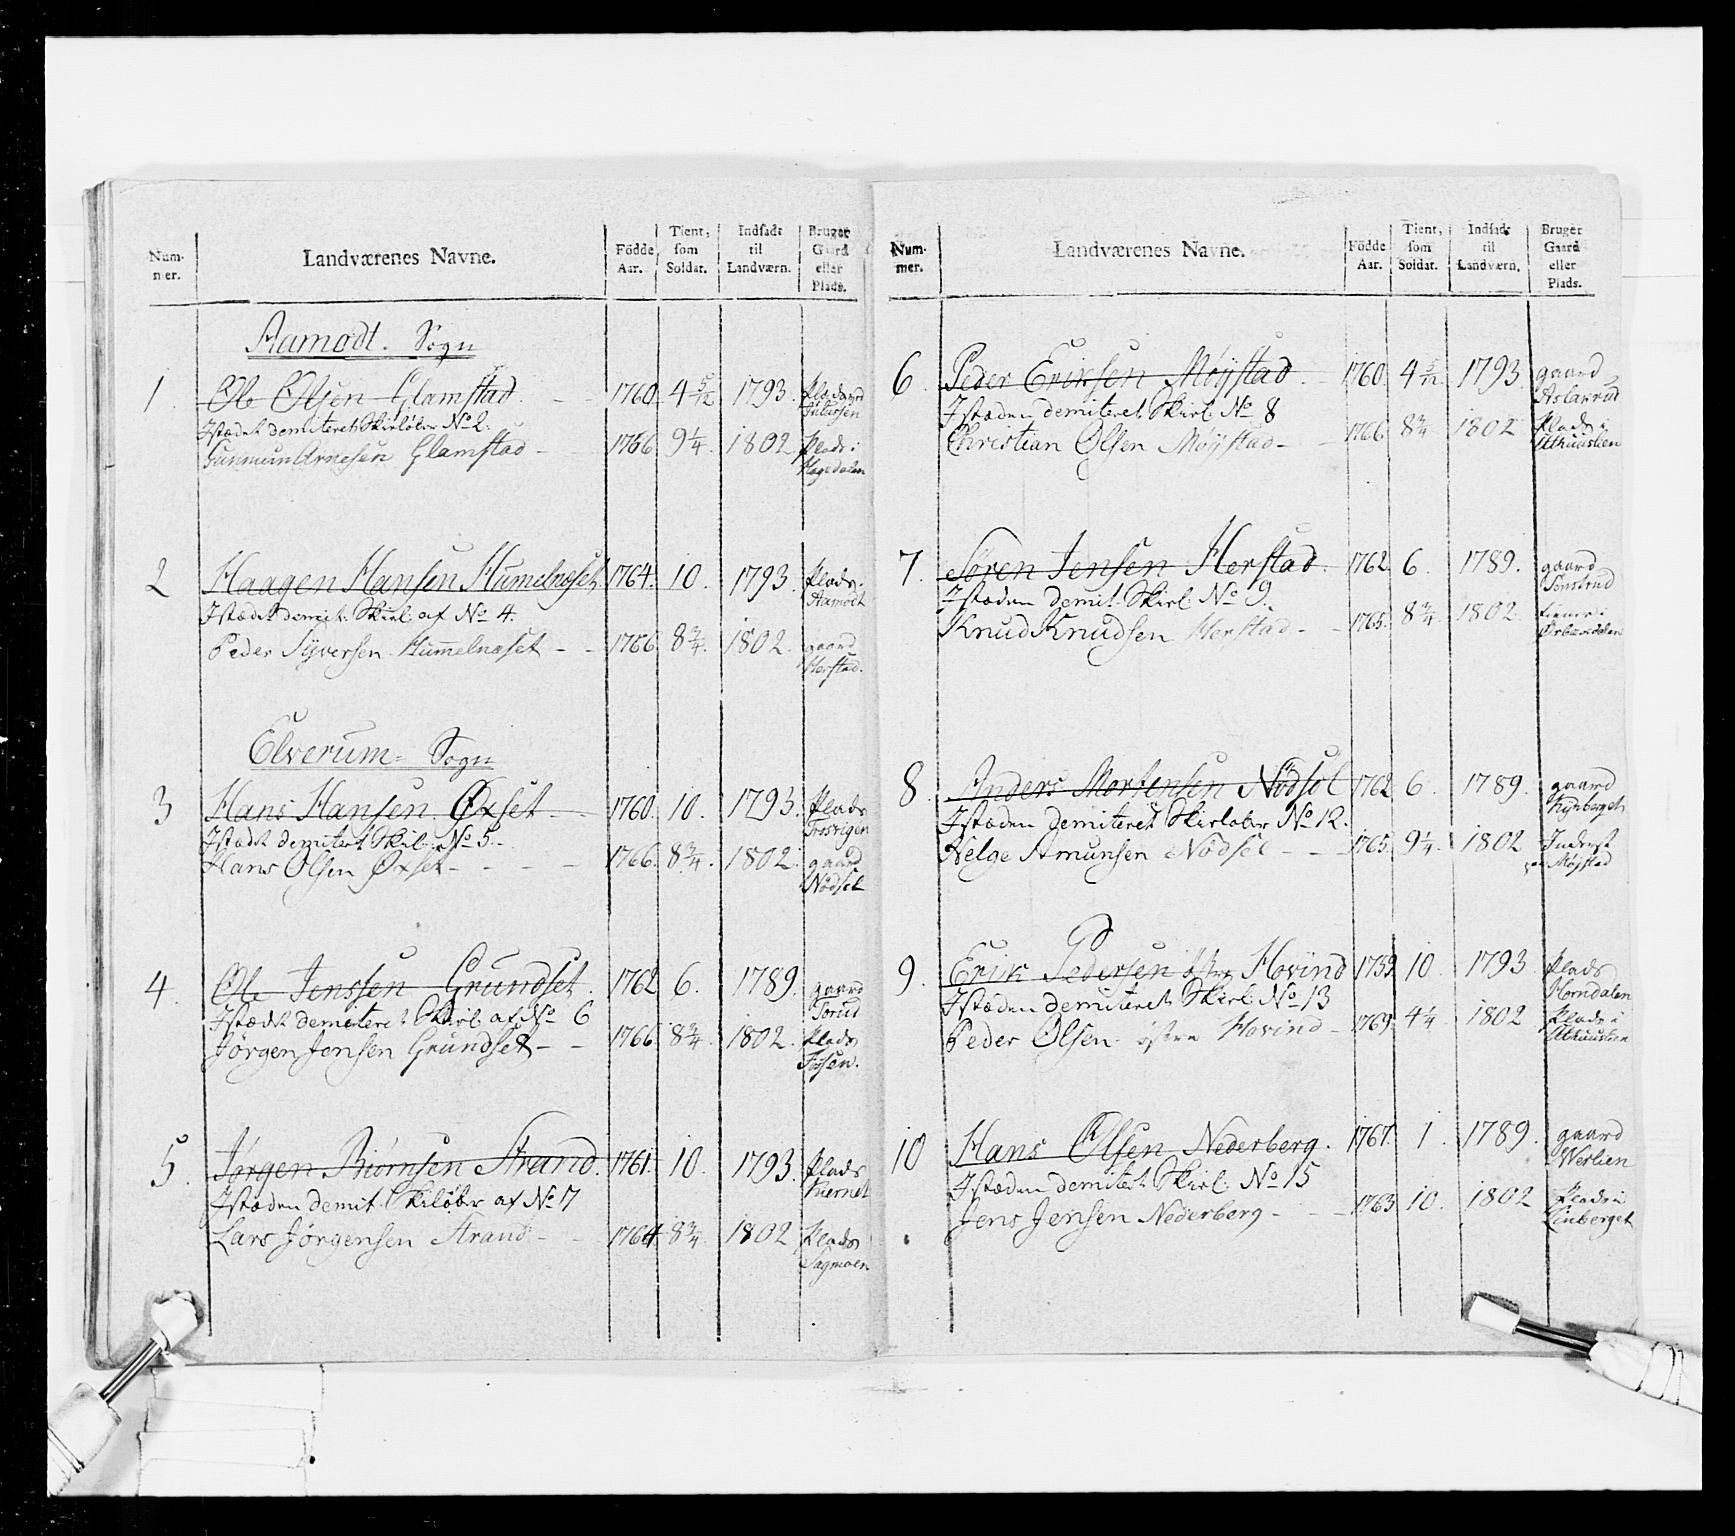 Num-
mer.
Landværenes Navne.
Födde
Aar.
Tient,
som
Soldat.
Indsadt
til
Landværn.
Bruger
Gaard
eller
Plads.
Aamodt Sogn
1. Ole Olsen Glamstad. 1760. 4 5/12 1793. Plads
Istædet demiteret Skirløber No 2.
Gunmun Arnesen Glamstad - 1766 9 1/4 1802 Plads i
Hagedalen
2 Haagen Hansen Humelnæset 1764. 10. 1793. Plads.
Aamodt
Istædet demit. Skirl. af No 4.
Peder Syversen Hummelnæset - - 1766. 8 3/4. 1802. gaard
Herstad.
Elverum Sogn
3 Hans Hansen Øxset 1760. 10. 1793. Plads
Istædet demitert Skil. No 5.
Hans Olsen Øxset - - - 1766. 8 3/4. 1802. gaard
Nødset
4. Ole Jenssen Grundset. 1762 6. 1789. gaard
Torud
Istædet demiteret Skirl af No 6
Jørgen Jensen Grundset - - 1766. 8 3/4. 1802. Plads
5. Jørgen Biørnsen Strand. 1761. 10. 1793. Plads
Kiernet
Istæden demit. Skiløber af No 7
Lars Jørgensen Strand - 1764 8 3/4 1802 Plads
Sagmoen
Num-
mer.
Landværenes Navne.
Födde
Aar.
Tient,
som
Soldat.
Indsadt
til
Landværn.
Bruger
Gaard
eller
Plads.
6. Peder Eriksen Møystad. 1760. 4 5/12. 1793. gaard
Aslakrud
Istæden demiteret Skirl. No 8
Christian Olsen Møystad - 1766. 8 3/4. 1802 Plads i
7. Søren Jensen Herstad. 1762 6. 1789. gaard
Istæden demit. Skirl. No 9.
Knud Knudsen Herstad - - 1765. 8 3/4. 1802.
8. Anders Mortensen Nödsel 1762 6. 1789. gaard
Kynberget
Istæden demiteret Skirløber No 12.
Helge Amunsen Nödsel - - - 1765. 9 1/4. 1802 Inderst
Møystad
9. Erik Pedersen østre Hovind 1759 10. 1793. Plads
Horndalen
Istæden demiteret Skirl. No 13
Peder Olsen østre Hovind - 1769. 4 1/4. 1802 Plads i
10 Hans Olsen Nederberg. 1767. 1. 1789. gaard
Westlien
Istæden demitert Skirl. No 15
Jens Jensen Nederberg - - - 1763 10. 1802 Plads i
Linberget